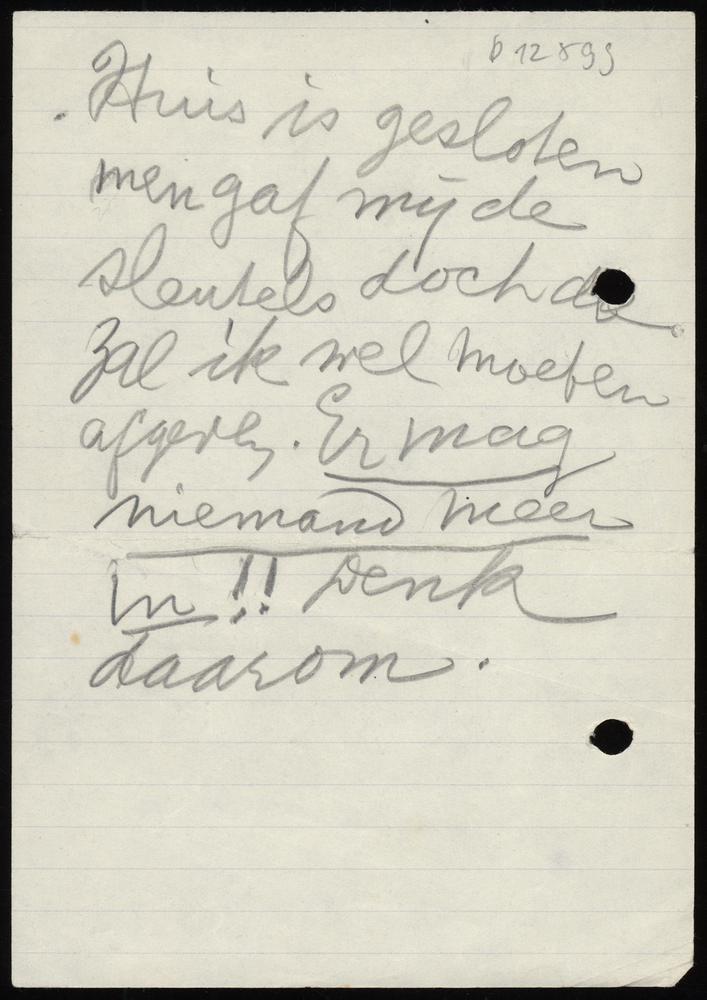 b 12899
. Huis is gesloten
men gaf mij de
sleutels doch de
zal ik wel moeten
afgeven. Er mag
niemand meer
in !! Denk
daarom.